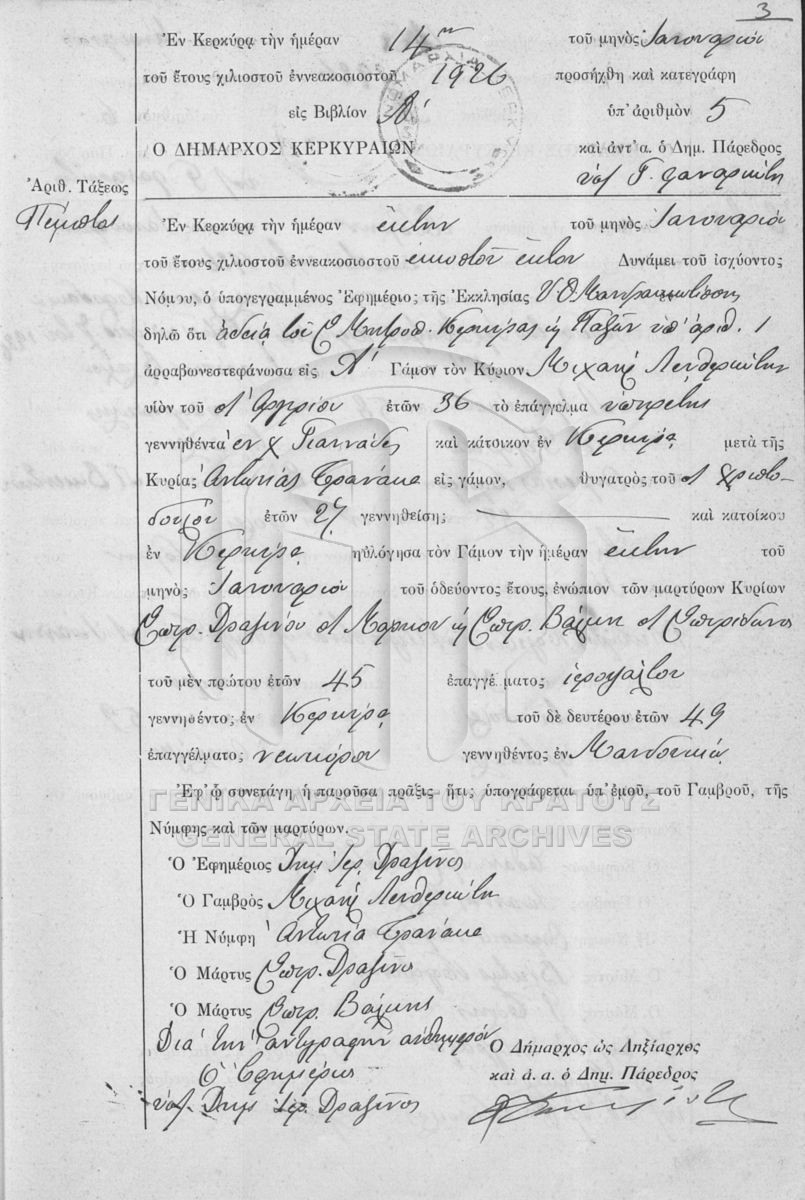 3
Ἐν Κερκύρᾳ τὴν ἡμέραν 14ην τοῦ μηνὸς Ἰανουαρίου
τοῦ ἔτους χιλιοστοῦ ἐννεακοσιοστοῦ 1926 προσήχθη καὶ κατεγράφη
εἰς Βιβλίον Α' ὑπ' ἀριθμὸν 5
Ο ΔΗΜΑΡΧΟΣ ΚΕΡΚΥΡΑΙΩΝ καὶ ἀντ' α. ὁ Δημ. Πάρεδρος
Ἀριθ. Τάξεως
Πέμπτος
Ἐν Κερκύρᾳ τὴν ἡμέραν ἕκτην τοῦ μηνὸς Ἰανουαρίου
τοῦ ἔτους χιλιοστοῦ ἐννεακοσιοστοῦ εἰκοστοῦ ἕκτου Δυνάμει τοῦ ἰσχύοντος
Νόμου, ὁ ὑπογεγραμμένος Ἐφημέριο; τῆς Ἐκκλησίας Υ.Θ.
δηλῶ ὅτι ἀδείᾳ τοῦ Σ. Μητροπ. Κερκύρας κ Παξῶν ὑπ' ἀριθ. 1
ἀρραβωνεστεφάνωσα εἰς Α' Γάμον τὸν Κύριον Μιχαὴλ Λευθεριώτην
υἱὸν τοῦ ἐτῶν 36 τὸ ἐπάγγελμα ὑπηρέτης
γεννηθέντα ἐν χ Γιαννάδες καὶ κάτοικον ἐν Κερκύρᾳ μετὰ τῆς
Κυρίας Ἀντωνίας εἰς γάμον, θυγατρὸς τοῦ π Χριστο-
δούλου ἐτῶν 27 γεννηθείση; καὶ κατοίκου
ἐν Κερκύρᾳ ηὐλόγησα τὸν Γάμον τὴν ἡμέραν ἕκτην τοῦ
μηνὸ; Ἰανουαρίου τοῦ ὁδεύοντος ἔτους, ἐνώπιον τῶν μαρτύρων Κυρίων
Σπυρ. Δραζίνου κ Σπυρ. Βάλμη π Σπυρίδωνος
τοῦ μὲν πρώτου ἐτῶν 45 ἐπαγγέ ματο; ἱεροψάλτου
γεννηθέντο; ἐν Κερκύρᾳ τοῦ δὲ δευτέρου ἐτῶν 49
ἐπαγγέλματο; νεωκόρου γεννηθέντος ἐν
Ἐφ' ᾧ συνετάγη ἡ παροῦσα πρᾶξις ἥτι; ὑπογράφεται ὑπ' ἐμοῦ, τοῦ Γαμβροῦ, τῆς
ΓΕΝΙΚΑ ΑΡΧΕΙΑ ΤΟΥ ΚΡΑΤΟΥΣ
Νύμφης καὶ τῶν μαρτύρων.
GENERAL STATE ARCHIVES
Ὁ Ἐφημέριος Δημ. Ἱερ. Δραζίνος
Ὁ Γαμβρὸς Μιχαὴλ Λευθεριώτης
Ἡ Νύμφη Ἀντωνία
Ὁ Μάρτυς Σπυρ. Δραζίνος
Ὁ Μάρτυς Σπυρ. Βάλμης
Διὰ τὴν ἀντιγραφὴν αὐθημερόν
Ὁ Ἐφημέριος
Δημ. Ἱερ. Δραζίνος
Ὁ Δήμαρχος ὡς Ληξίαρχος
καὶ ἀ. α. ὁ Δημ. Πάρεδρος